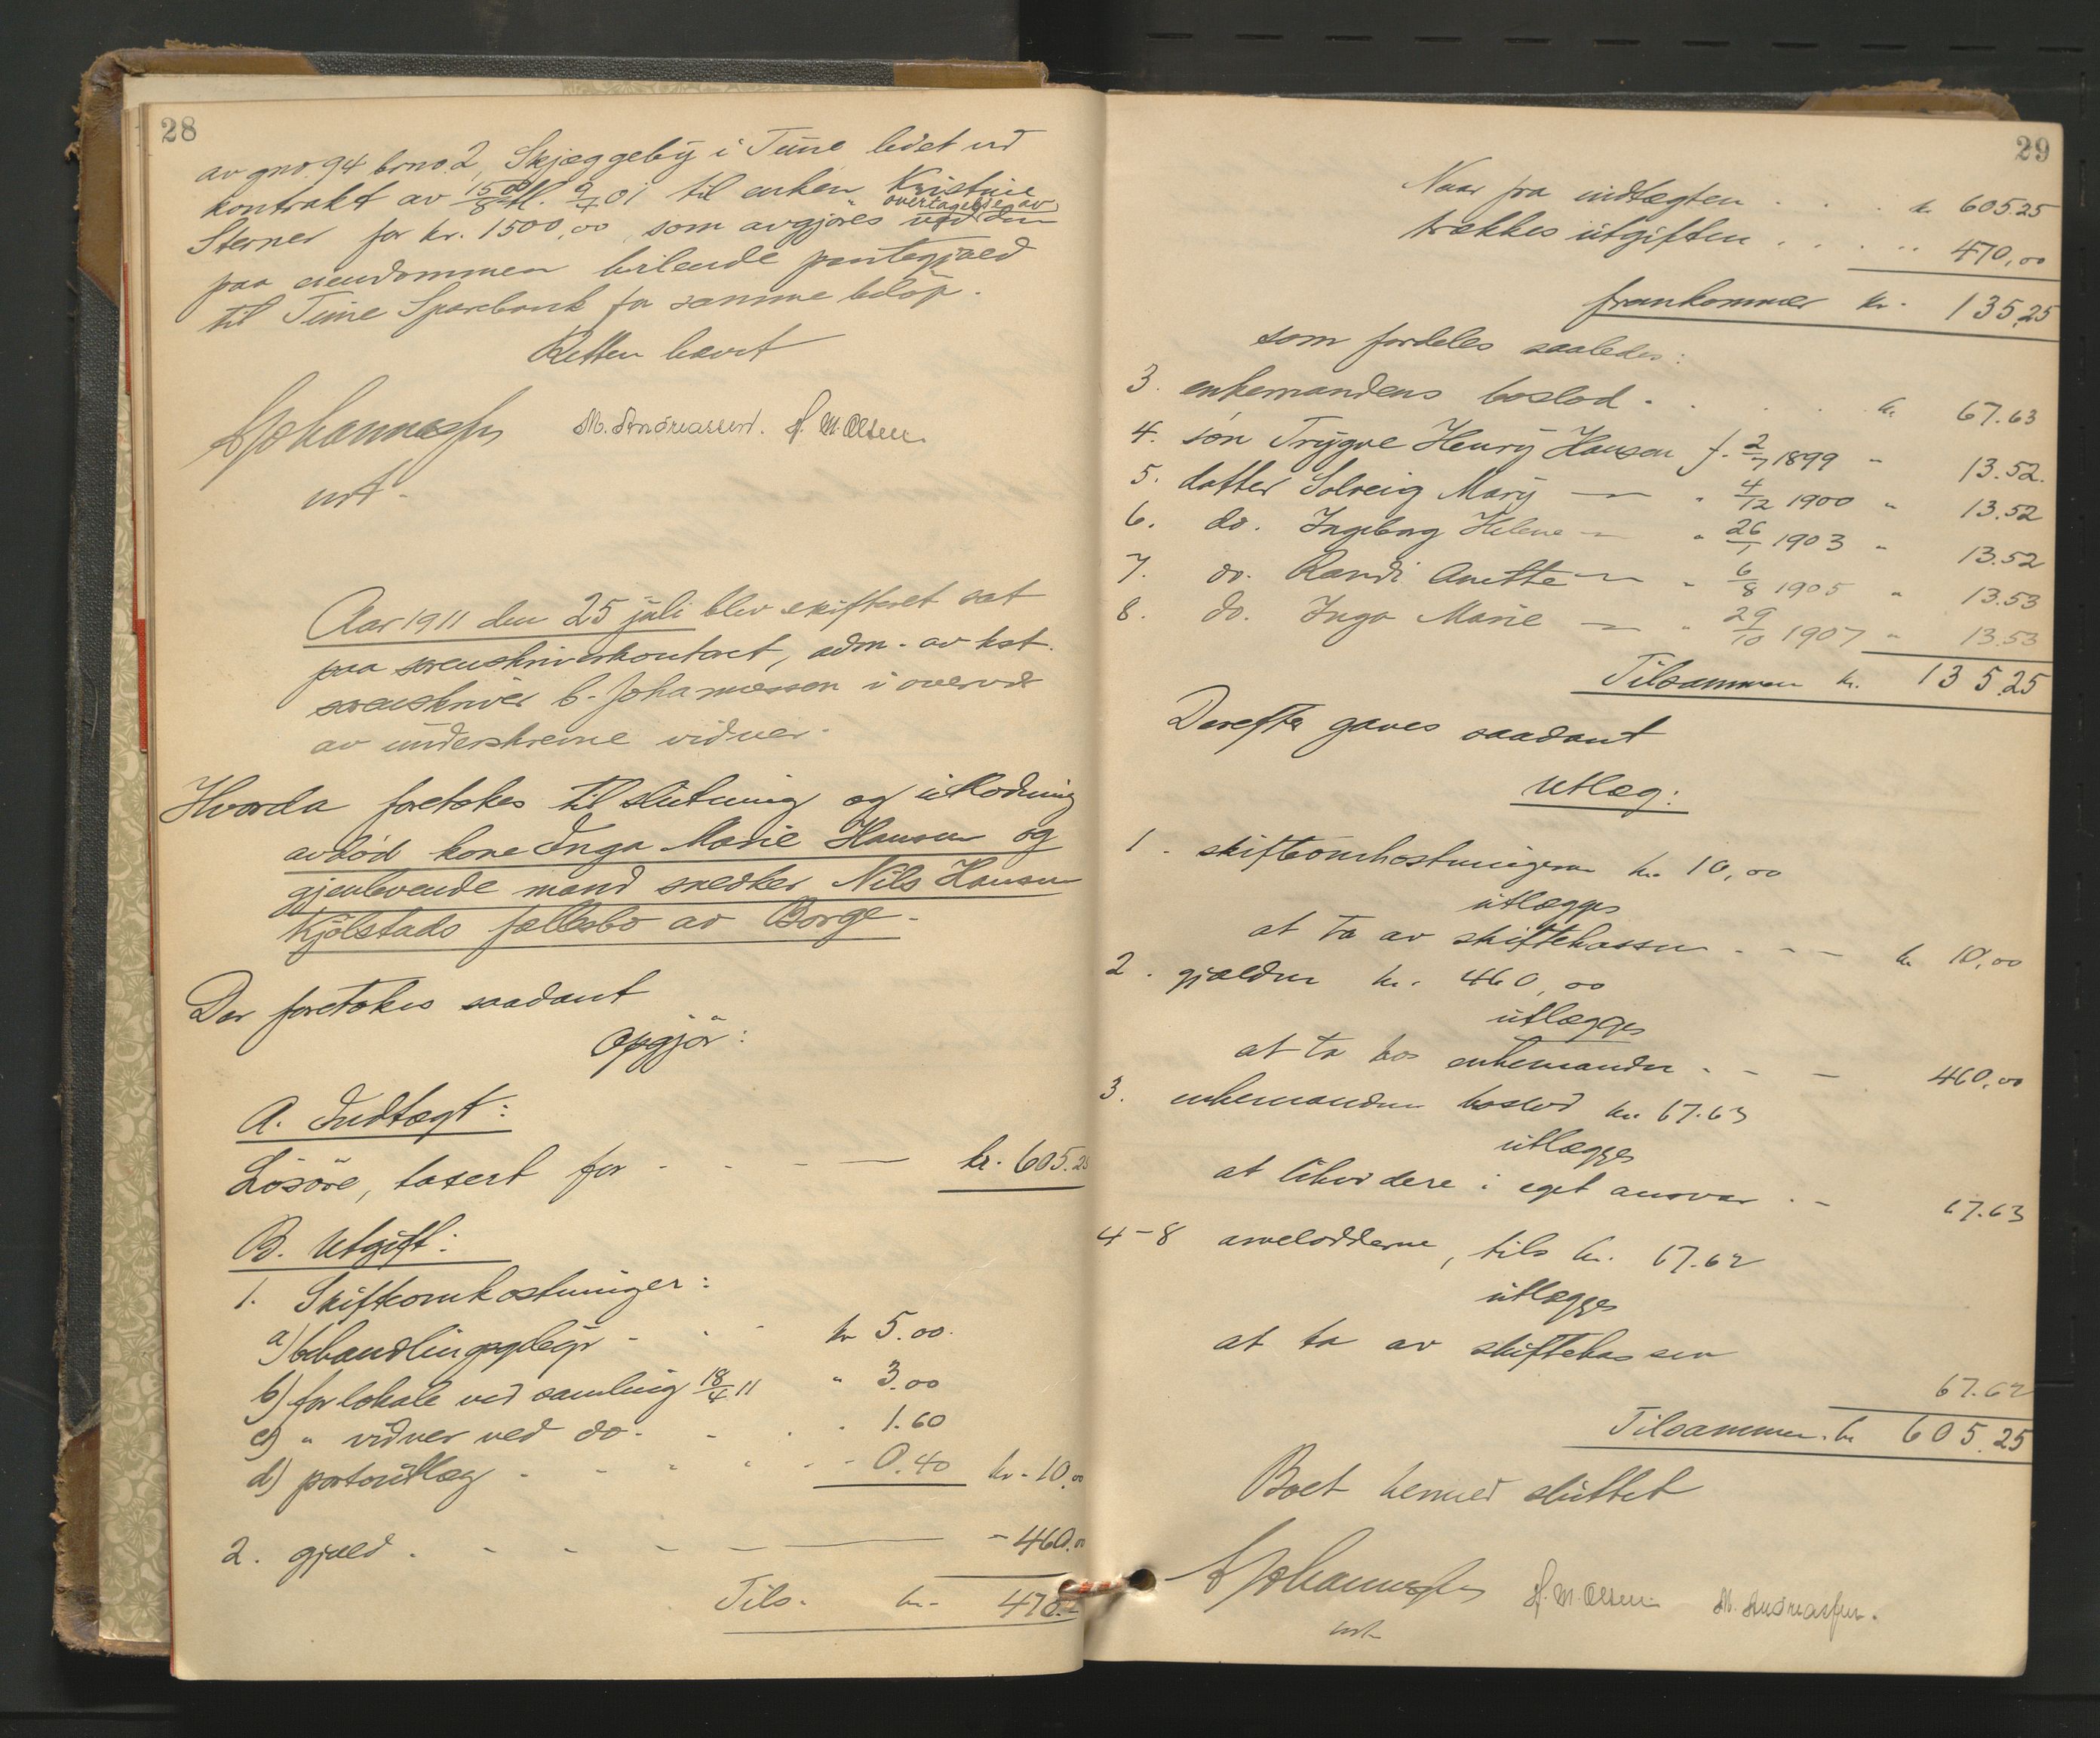 28
av gno. 94 brno. 2, Skjæggeby i Tune ledet ved
kontrakt av 15/8 00 tl. 9/4 01 til enken Kristine
overtagelse av
Sterner for kr. 1500,00, som avgjøres ved den
paa eiendommen hvilende pantegjæld
til Tune Sparebank for samme beløp.
Retten hævet
Johannessen M. Andreassen. H. M. Olsen.
cst.
Aar 1911 den 25 juli blev skifteret sat
paa sorenskriverkontoret, adm. av kst.
sorenskriver C. Johannessen i overvær
av underskrevne vidner.
Hvorda foretokes til slutning og utlodning
avdød kone Inga Marie Hansen og
gjenlevende mand snedker Nils Hansen
Kjølstads fællesbo av Borge.
Der foretokes saadant
Opgjør:
A. Indtægt:
Løsøre, taxert for - - - — kr. 605.25
B. Utgift:
1. Skifteomkostninger:
a) behandlingsgebyr - - - kr 5.00.
b) for lokale ved samling 18/4 11 " 3.00
c) " vidner ved do. - . . 1.60
d) portoutlæg - - - - - - 0.40 kr. 10,00
2. gjæld . - - - - — - 460.00
Tils. kr. 470.-
29
Naar fra indtægten . . . kr 605.25
trækkes utgiften . . . . " 470,00
fremkommer kr. 135,25
som fordeles saaledes:
3. enkemandens boslod . . . . kr. 67.63
4. søn Trygve Henry Hansen f. 2/7 1899 " 13.52.
5. datter Solveig Mary — " 4/12 1900 " 13.52
6. do. Ingeborg Helene — " 26/1 1903 " 13.52
7. do. Randi Anette — " 6/8 1905 " 13.53
8. do. Inga Marie — " 29/10 1907 " 13.53
Tilsammen kr. 135.25
Derefter gaves saadant
Utlæg:
1. skifteomkostningerne kr. 10,00
utlægges
at ta av skiftekassen - - — kr 10,00
2. gjælden kr. 460,00
utlægges
at ta hos enkemanden - - — 460,00
3. enkemandens boslod kr. 67.63
utlægges
at likvidere i eget ansvar . - 67.63
4-8 arvelodderne, tils kr. 67.62
utlægges
at ta av skiftekassen
67.62
Tilsammen. kr 605.25
Boet hermed sluttet
Johannessen H. M. Olsen. M. Andreassen.
cst.